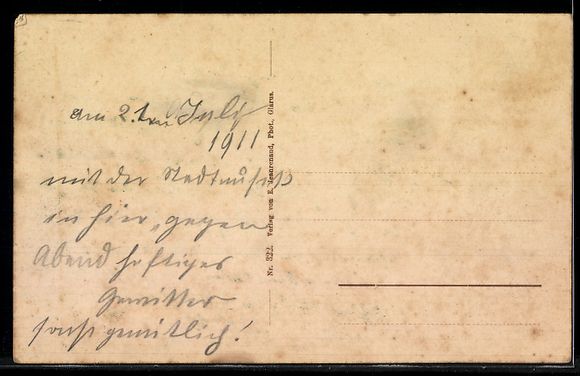 am 2. ten July
1911
mit der Stadtmusik
in hier, gegen
Abend heftiges
Gewitter
sonst gemütlich!
Nr. 322. Verlag von E. Jeanrenaud, Phot., Glarus.